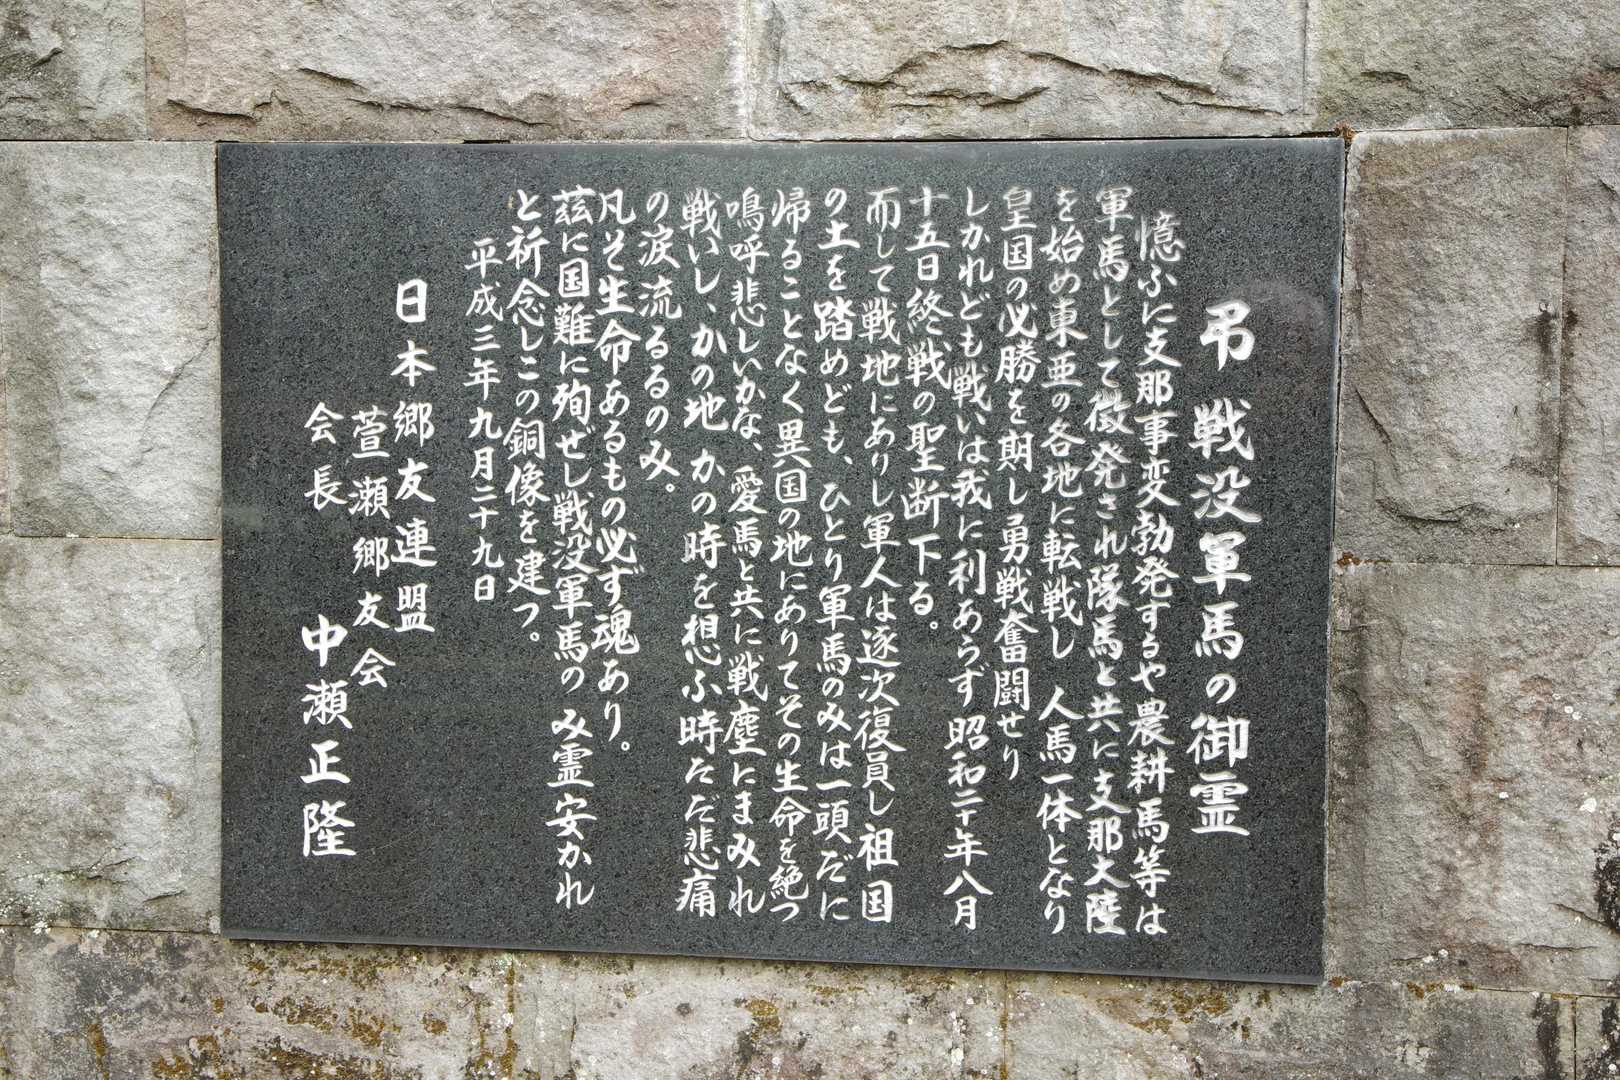 弔戦没軍馬の御霊
憶ふに支那事変勃発するや農耕馬等は
軍馬として徴発され隊馬と共に支那大陸
を始め東亜の各地に転戦し 人馬一体となり
皇国の必勝を期し勇戦奮闘せり
しかれども戦いは我に利あらず昭和二十年八月
十五日終戦の聖断下る。
而して戦地にありし軍人は逐次復員し祖国
の土を踏めども、ひとり軍馬のみは一頭だに
帰ることなく異国の地にありてその生命を絶つ
鳴呼悲しいかな、愛馬と共に戦塵にまみれ
戦いし、かの地かの時を想ふ時ただ悲痛
の涙流るるのみ。
凡そ生命あるもの必ず魂あり。
茲に国難に殉ぜし戦没軍馬のみ霊安かれ
と祈念しこの銅像を建つ。
平成三年九月二十九日
日本郷友連盟
萱瀬郷友会
会長 中瀬正隆